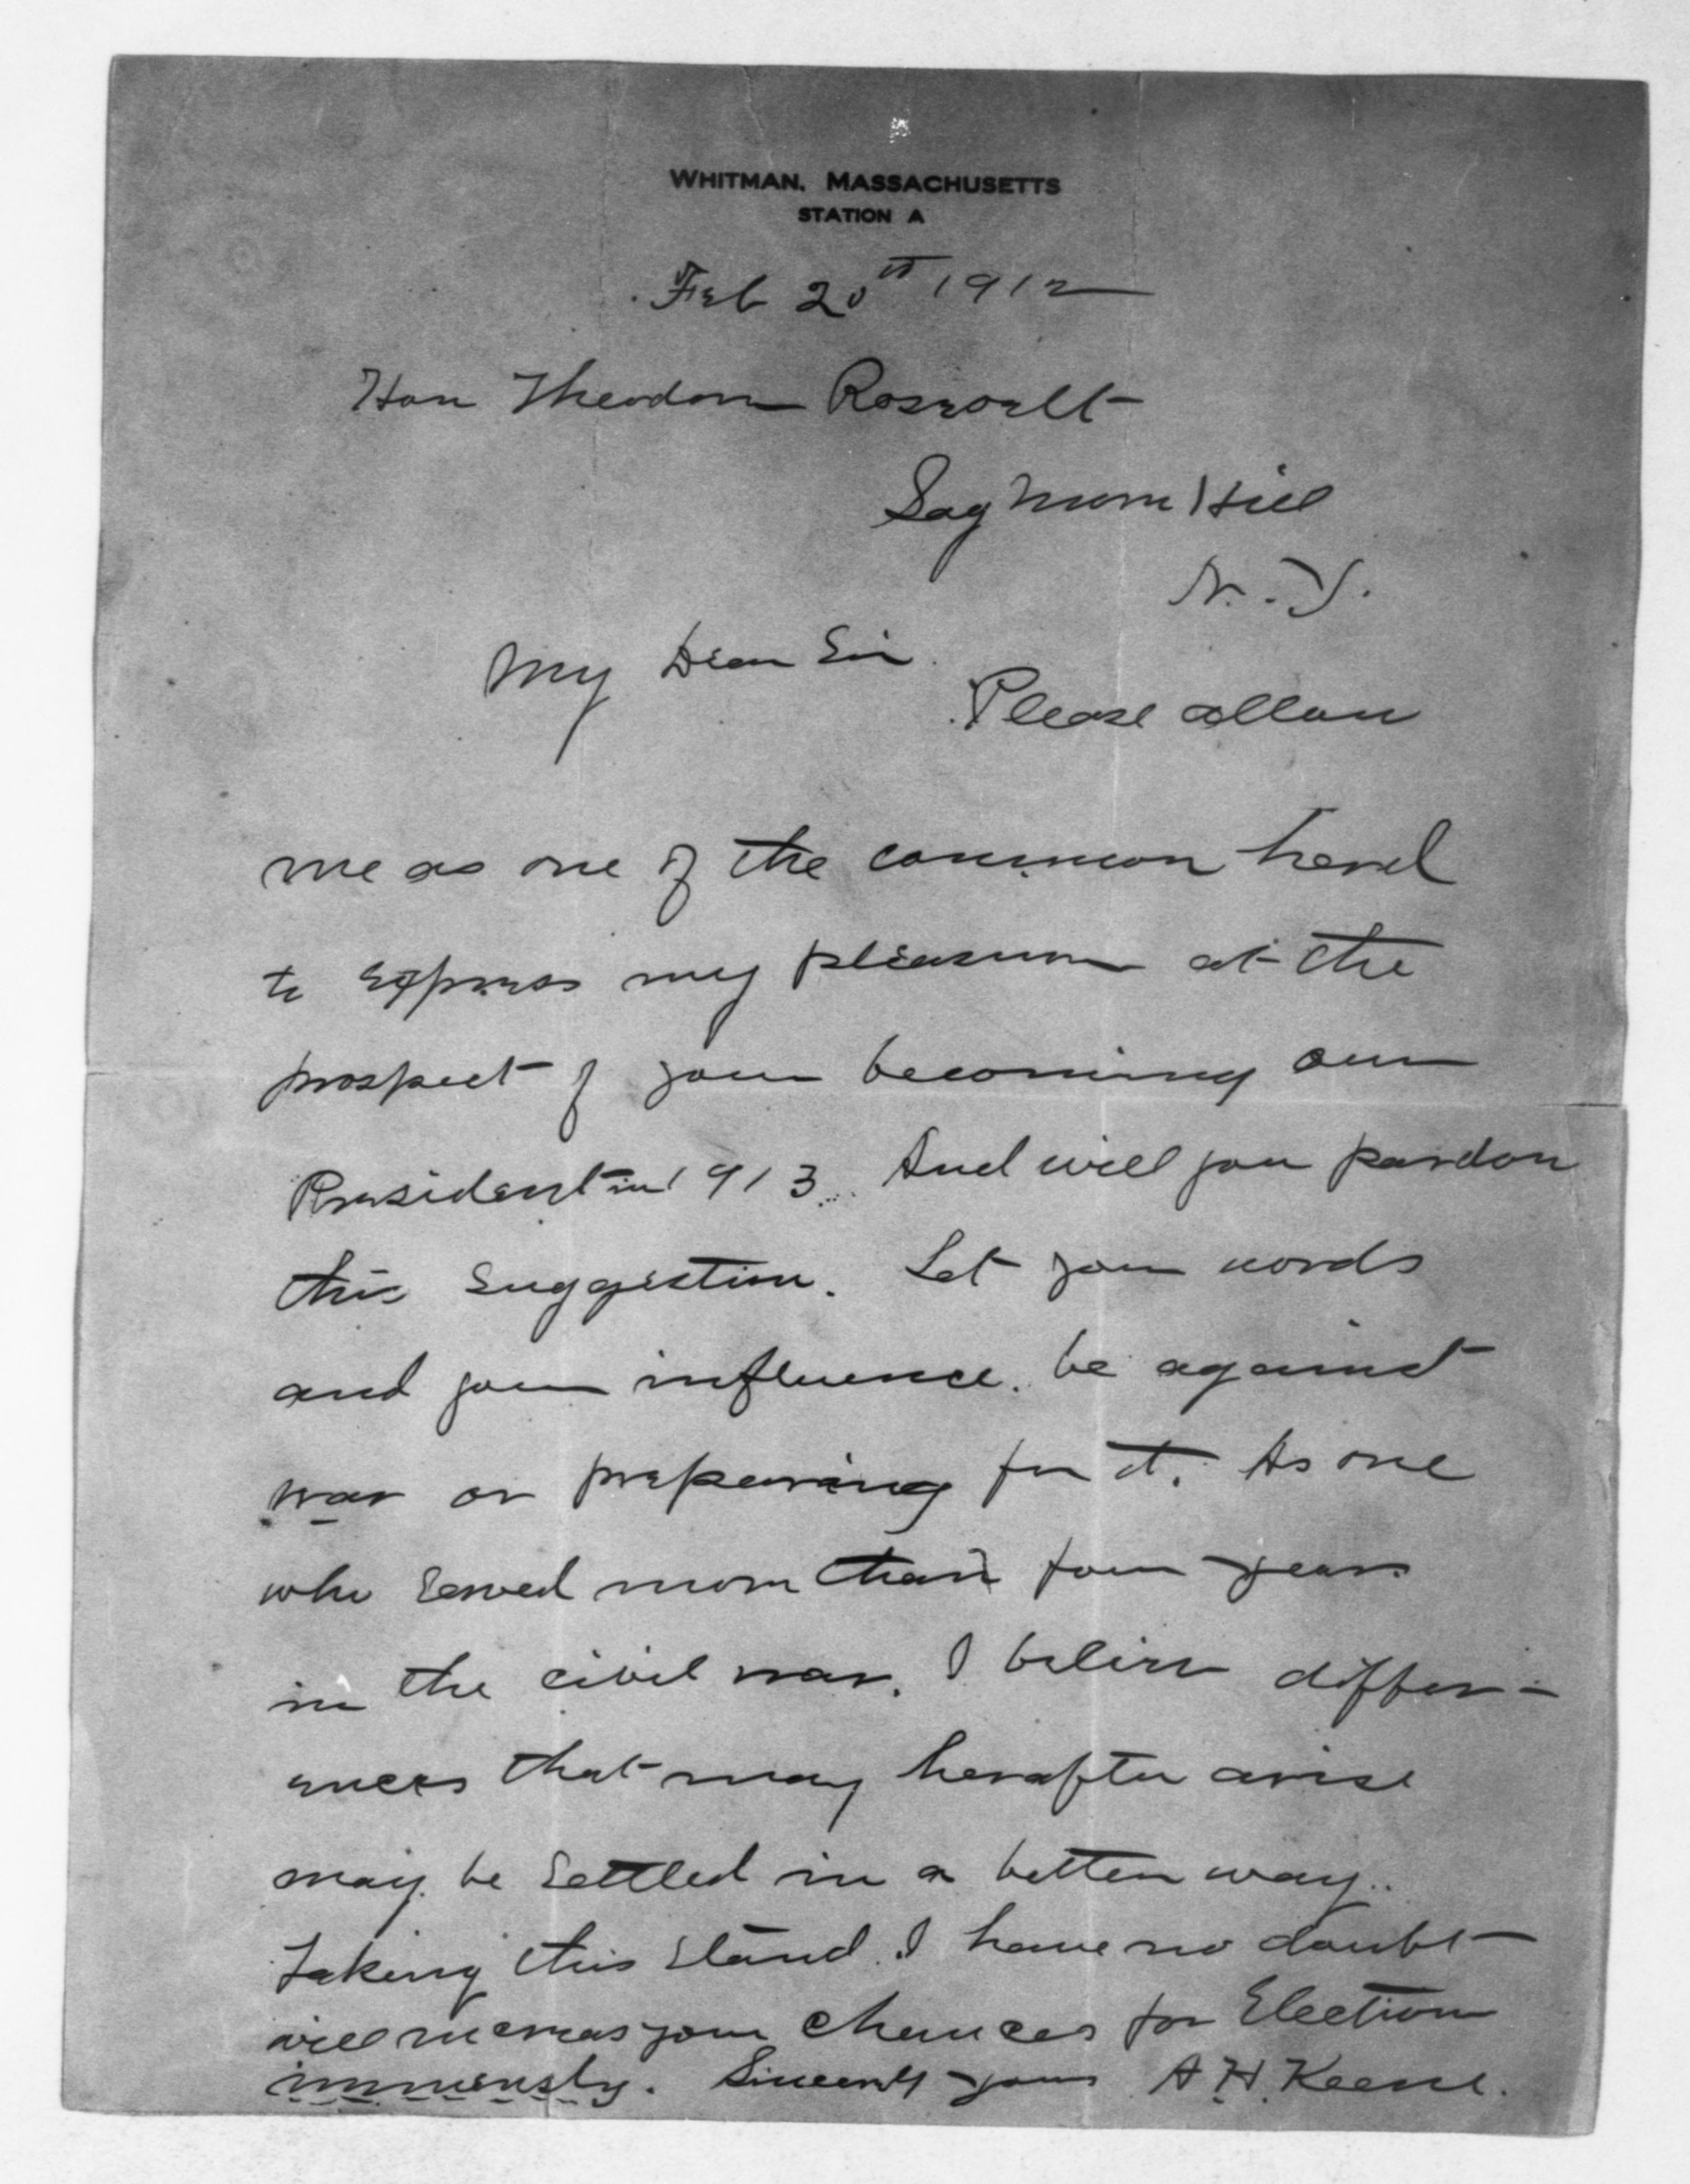 WHITMAN, MASSACHUSETTS
STATION A
Feb 20th 1912
Hon Theodore Rosevelt
Sagmore Hill
N.Y.
My Dear Sir.
Please allow
me as one of the common herd
to express my pleasure at the
prospect of your becoming our
President in 1913. And will you pardon
this suggestion. Let your words
and your influence. be against
war or preparing for it. As one
who served more than four years
in the civil war. I believe differ-
ences that may herafter arise
may be settled in a better way.
Taking this stand. I have no doubt
will increas your chances for Election
immensly. Sincerely yours A H. Keene.